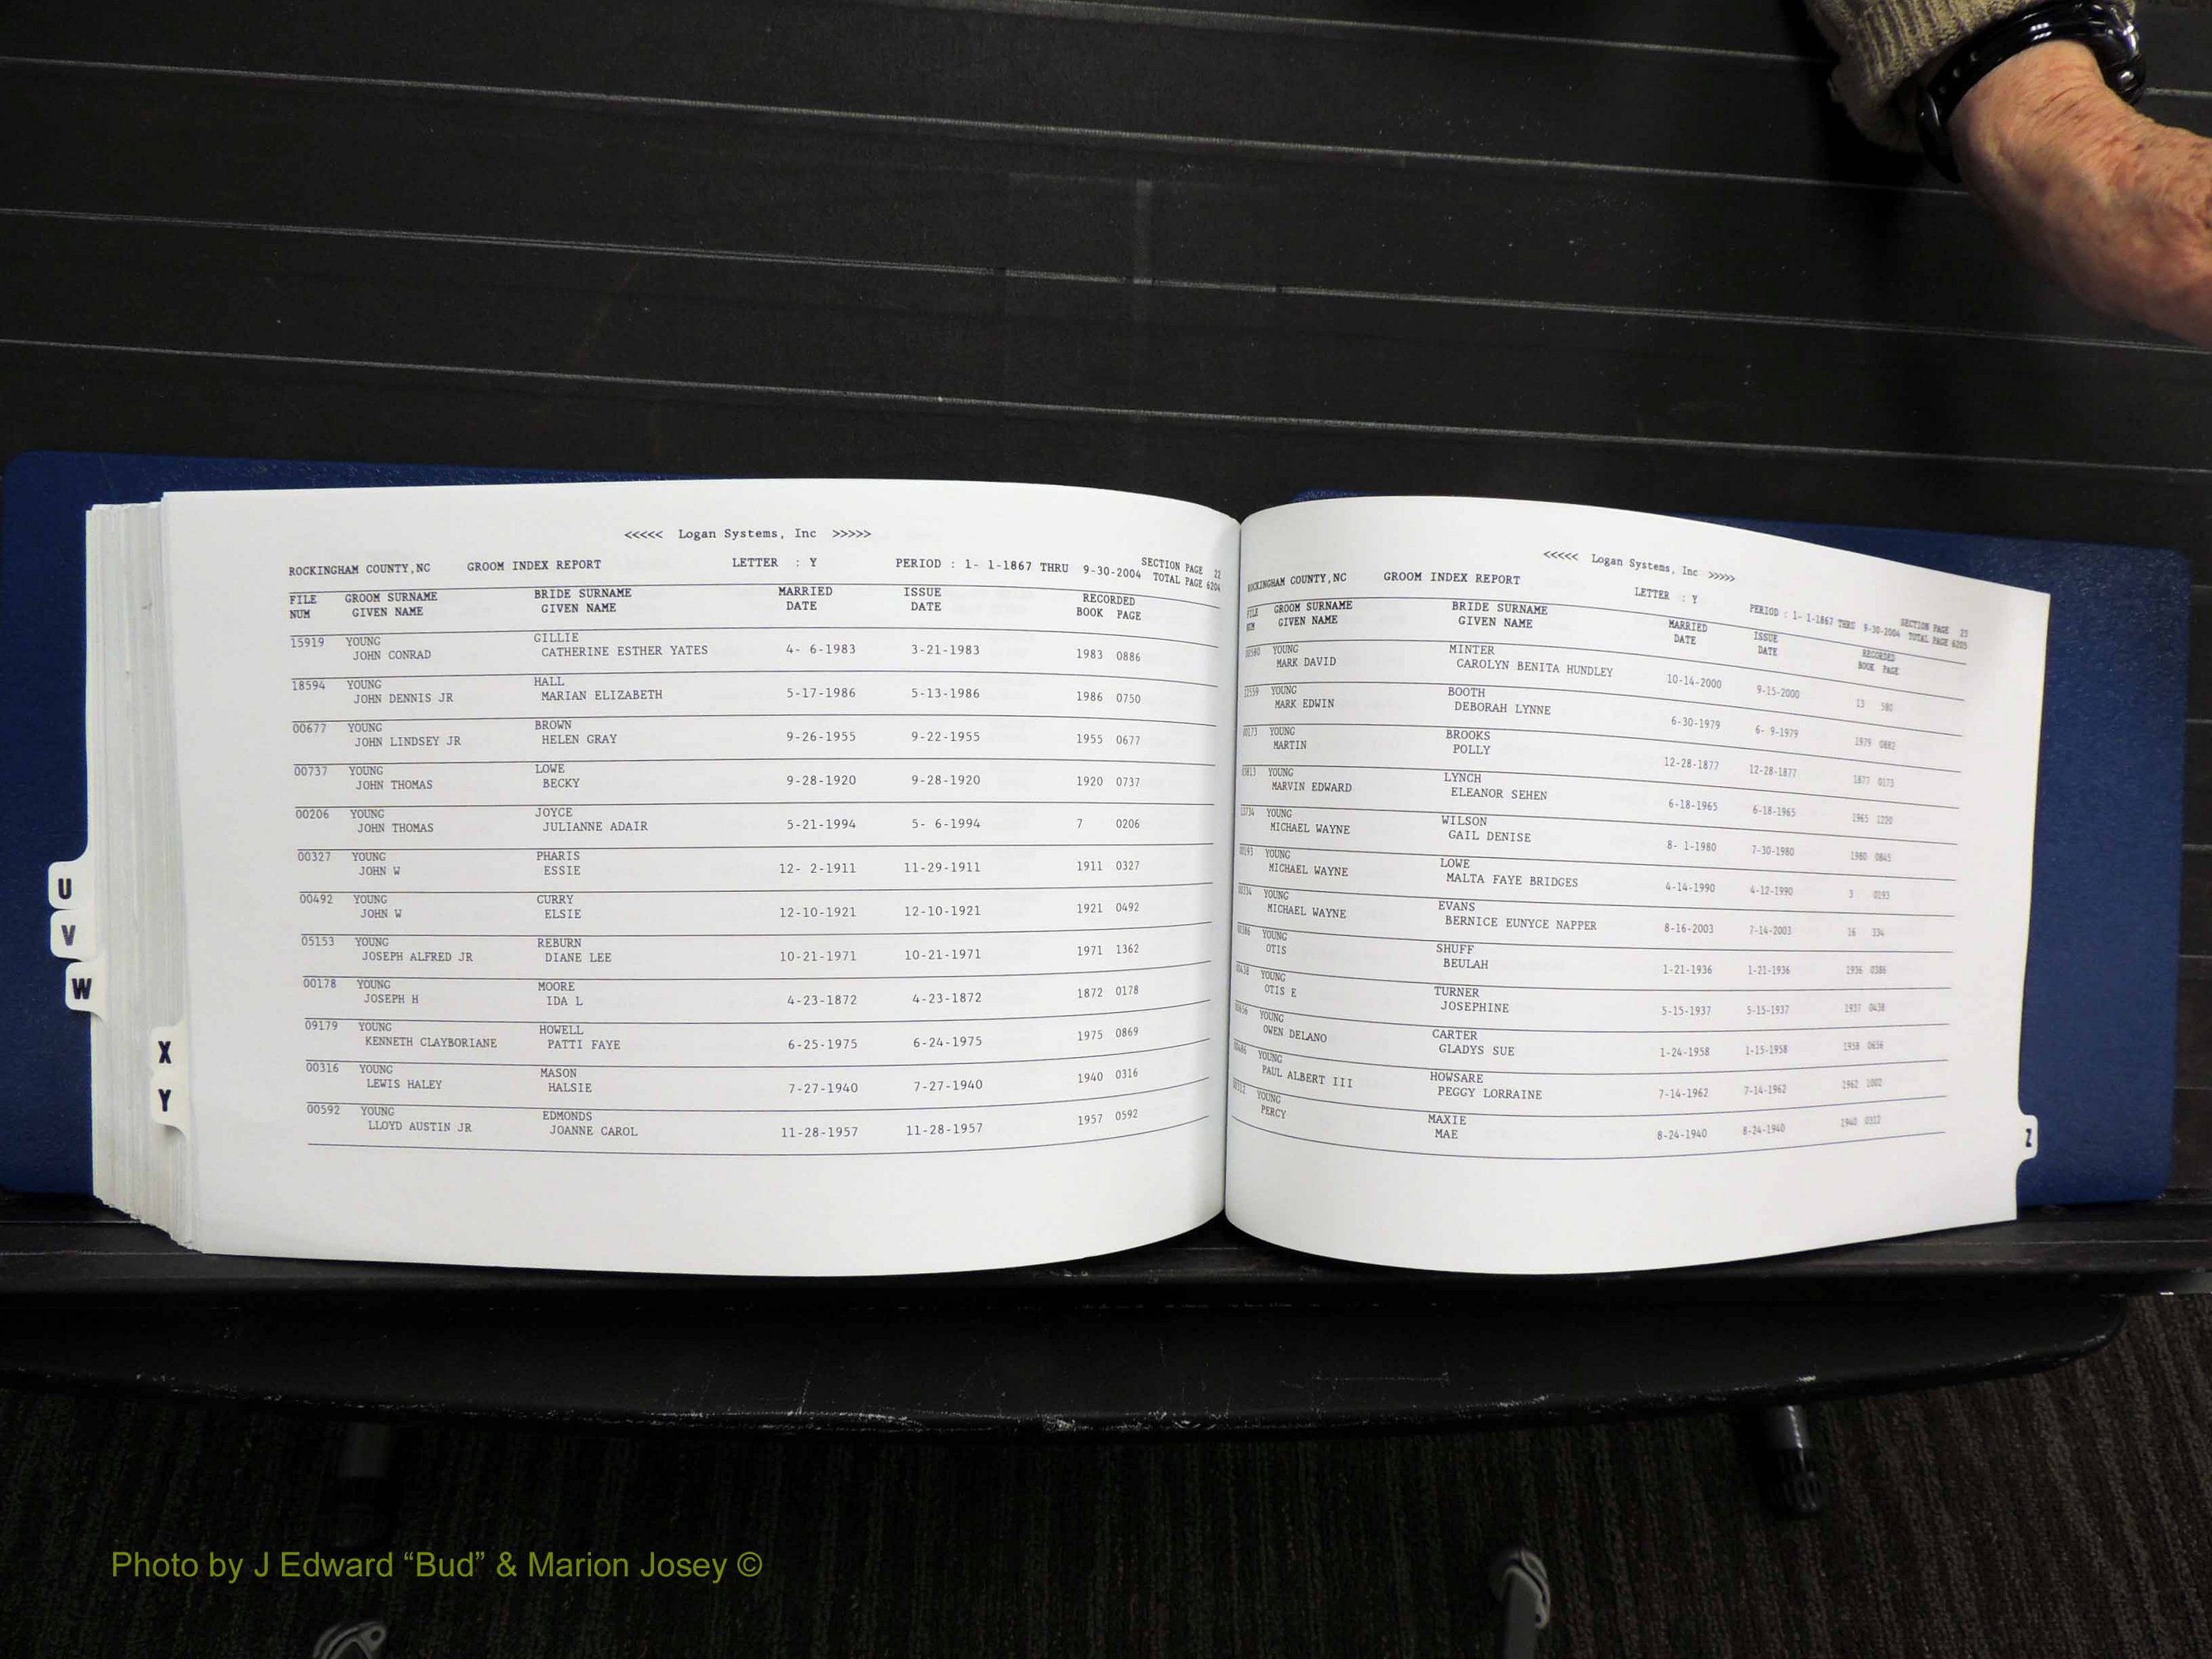 <<<<< Logan Systems, Inc >>>>>
ROCKINGHAM COUNTY,NC GROOM INDEX REPORT LETTER : Y PERIOD : 1- 1-1867 THRU 9-30-2004 SECTION PAGE 22
TOTAL PAGE 6204
FILE GROOM SURNAME BRIDE SURNAME MARRIED ISSUE RECORDED
NUM GIVEN NAME GIVEN NAME DATE DATE BOOK PAGE
15919 YOUNG GILLIE
JOHN CONRAD CATHERINE ESTHER YATES 4- 6-1983 3-21-1983 1983 0886
18594 YOUNG HALL
JOHN DENNIS JR MARIAN ELIZABETH 5-17-1986 5-13-1986 1986 0750
00677 YOUNG BROWN
JOHN LINDSEY JR HELEN GRAY 9-26-1955 9-22-1955 1955 0677
00737 YOUNG LOWE
JOHN THOMAS BECKY 9-28-1920 9-28-1920 1920 0737
00206 YOUNG JOYCE
JOHN THOMAS JULIANNE ADAIR 5-21-1994 5- 6-1994 7 0206
00327 YOUNG PHARIS
JOHN W ESSIE 12- 2-1911 11-29-1911 1911 0327
00492 YOUNG CURRY
JOHN W ELSIE 12-10-1921 12-10-1921 1921 0492
05153 YOUNG REBURN
JOSEPH ALFRED JR DIANE LEE 10-21-1971 10-21-1971 1971 1362
00178 YOUNG MOORE
JOSEPH H IDA L 4-23-1872 4-23-1872 1872 0178
09179 YOUNG HOWELL
KENNETH CLAYBORIANE PATTI FAYE 6-25-1975 6-24-1975 1975 0869
00316 YOUNG MASON
LEWIS HALEY HALSIE 7-27-1940 7-27-1940 1940 0316
00592 YOUNG EDMONDS
LLOYD AUSTIN JR JOANNE CAROL 11-28-1957 11-28-1957 1957 0592
<<<<< Logan Systems, Inc >>>>>
ROCKINGHAM COUNTY,NC GROOM INDEX REPORT LETTER : Y PERIOD : 1- 1-1867 THRU 9-30-2004 SECTION PAGE
TOTAL PAGE 6205
FILE GROOM SURNAME BRIDE SURNAME MARRIED ISSUE RECORDED
NUM GIVEN NAME GIVEN NAME DATE DATE BOOK PAGE
YOUNG MINTER
MARK DAVID CAROLYN BENITA HUNDLEY 10-14-2000 9-15-2000 13 580
YOUNG BOOTH
MARK EDWIN DEBORAH LYNNE 6-30-1979 6- 9-1979 1979 0882
00173 YOUNG BROOKS
MARTIN POLLY 12-28-1877 12-28-1877 1877 0173
YOUNG LYNCH
MARVIN EDWARD ELEANOR SEHEN 6-18-1965 6-18-1965 1965 1220
YOUNG WILSON
MICHAEL WAYNE GAIL DENISE 8- 1-1980 7-30-1980 1980 0845
00193 YOUNG LOWE
MICHAEL WAYNE MALTA FAYE BRIDGES 4-14-1990 4-12-1990 3 0193
00334 YOUNG EVANS
MICHAEL WAYNE BERNICE EUNYCE NAPPER 8-16-2003 7-14-2003 16 334
00386 YOUNG SHUFF
OTIS BEULAH 1-21-1936 1-21-1936 1936 0386
00438 YOUNG TURNER
OTIS E JOSEPHINE 5-15-1937 5-15-1937 1937 0438
00656 YOUNG CARTER
OWEN DELANO GLADYS SUE 1-24-1958 1-15-1958 1958 0656
YOUNG HOWSARE
PAUL ALBERT III PEGGY LORRAINE 7-14-1962 7-14-1962 1962 1002
00312 YOUNG MAXIE
PERCY MAE 8-24-1940 8-24-1940 1940 0312
U
V
W
X
Y
Z
Photo by J Edward “Bud” & Marion Josey ©